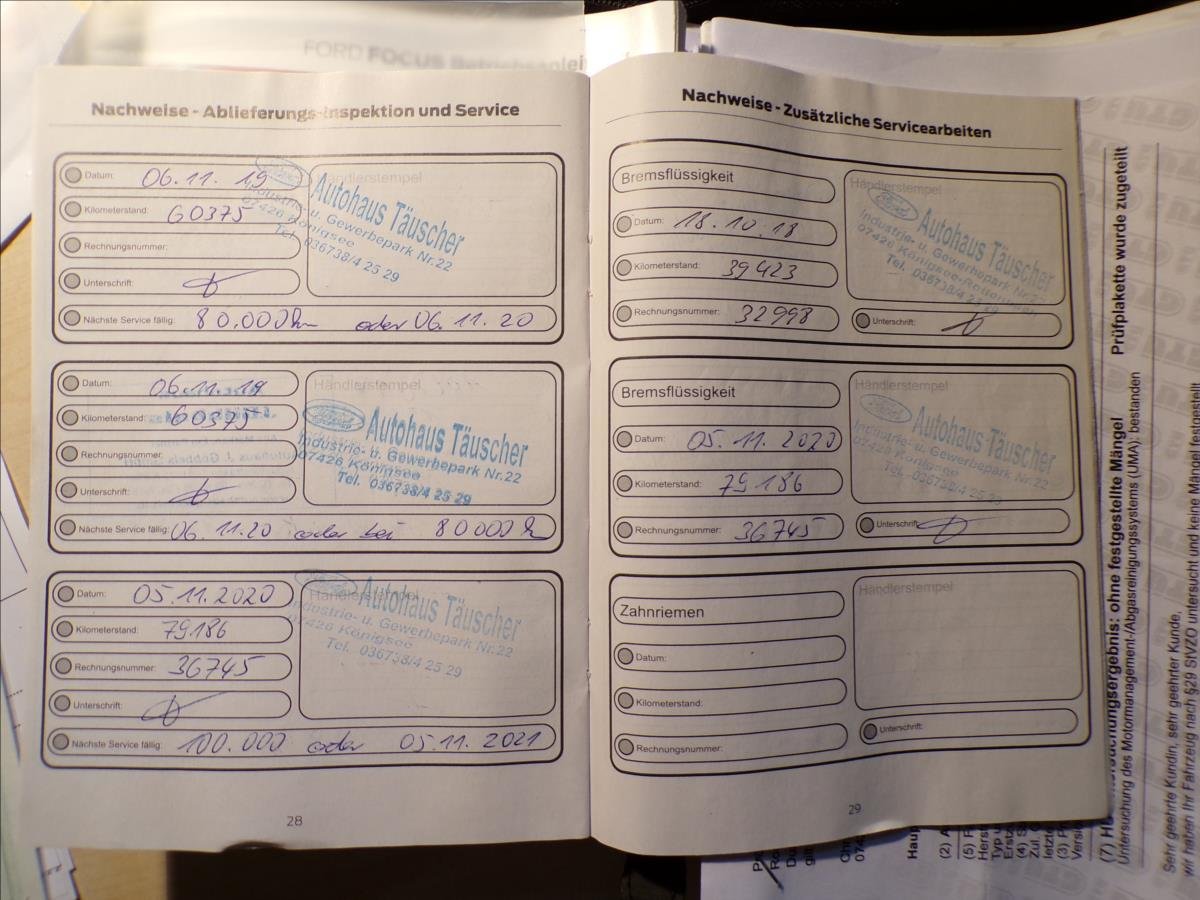 FORD FOCUS Betriebsanlei
Nachweise - Ablieferungs-Inspektion und Service
Datum: 06.11.19
Kilometerstand: 60375
Rechnungsnummer:
Unterschrift:
Händlerstempel
Autohaus Täuscher
Industrie- u. Gewerbepark Nr.22
07426 Königsee
Tel. 036738/4 25 29
Nächste Service fällig: 80.000km oder 06.11.20
Datum: 06.11.19
Kilometerstand: 60375
Rechnungsnummer:
Unterschrift:
Händlerstempel
Autohaus Täuscher
Industrie- u. Gewerbepark Nr.22
07426 Königsee
Tel. 036738/4 25 29
Nächste Service fällig: 06.11.20 oder bei 80000 km
Datum: 05.11.2020
Kilometerstand: 79186
Rechnungsnummer: 36745
Unterschrift:
Händlerstempel
Autohaus Täuscher
Industrie- u. Gewerbepark Nr.22
07426 Königsee
Tel. 036738/4 25 29
Nächste Service fällig: 100.000 oder 05.11.2021
28
Nachweise - Zusätzliche Servicearbeiten
Bremsflüssigkeit
Datum: 18.10.18
Kilometerstand: 39423
Rechnungsnummer: 32998
Händlerstempel
Autohaus Täuscher
Industrie- u. Gewerbepark Nr.22
07426 Königsee-Rottenbach
Tel. 036738/4 25 29
Unterschrift:
Bremsflüssigkeit
Datum: 05.11.2020
Kilometerstand: 79186
Rechnungsnummer: 36745
Händlerstempel
Autohaus Täuscher
Industrie- u. Gewerbepark Nr.22
07426 Königsee
Tel. 036738/4 25 29
Unterschrift:
Zahnriemen
Datum:
Kilometerstand:
Rechnungsnummer:
Händlerstempel
Unterschrift:
29
ersuchungsergebnis: ohne festgestellte Mängel Prüfplakette wurde zugeteilt
Untersuchung des Motormanagement-/Abgasreinigungssystems (UMA): bestanden
Sehr geehrte Kundin, sehr geehrter Kunde,
wir haben Ihr Fahrzeug nach §29 StVZO untersucht und keine Mängel festgestellt